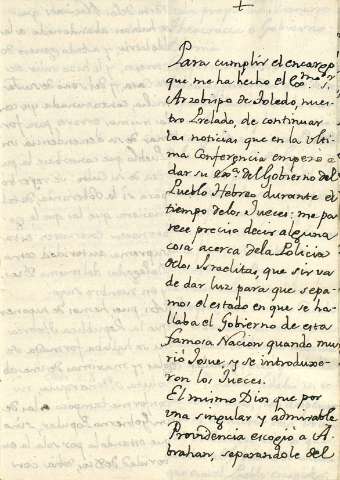 Para cumplir el encargo
que me ha hecho el Exmo. Sr.
Arzobispo de Toledo, nues-
tro Prelado, de continuar
las noticias que en la ulti-
ma Conferencia empezó a
dar su Exca. del Gobierno del
Pueblo Hebreo durante el
tiempo delos Jueces: me pa-
rece preciso decir alguna
cosa acerca dela Policia
delos Israelitas, que sirva
de dar luz para que sepa-
mos el estado en que se ha-
llaba el Gobierno de esta
famosa Nacion quando mu-
rió Josue, y se introduxe-
ron los Jueces.
El mismo Dios que por
una singular y admirable
Providencia escogió a A-
brahan, separandole del